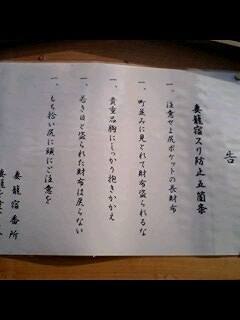 告
妻籠宿スリ防止五箇条
一、注意せよ尻ポケットの長財布
一、町並みに見とれて財布盗られるな
一、貴重品胸にしっかり抱きかかえ
一、若き日と盗られた財布は戻らない
一、もち拾い尻に頭にご注意を
妻籠宿番所
妻籠を